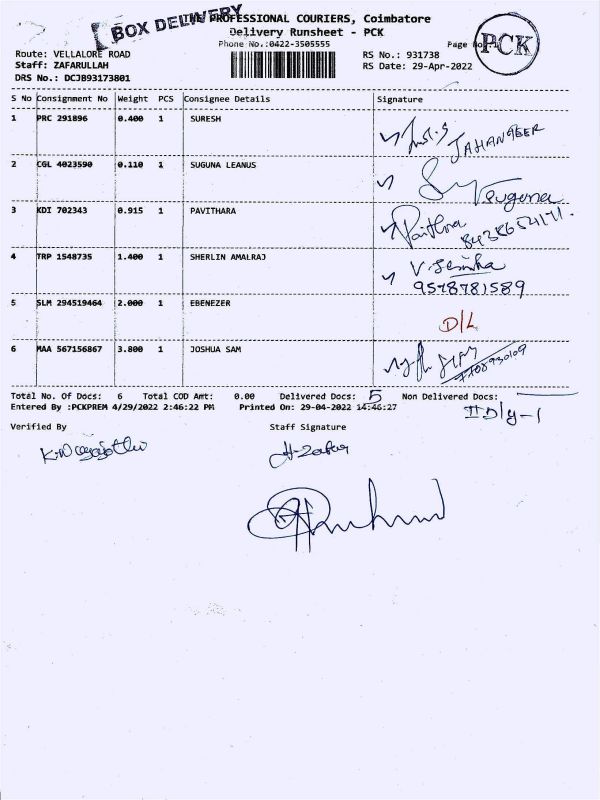 BOX DELIVERY
THE PROFESSIONAL COURIERS, Coimbatore
Delivery Runsheet - PCK
Phone No.:0422-3505555
Page No
PCK
Route: VELLALORE ROAD
RS No.: 931738
Staff: ZAFARULLAH
RS Date: 29-Apr-2022
DRS No.: DCJB93173801
S No Consignment No Weight PCS Consignee Details Signature
1 PRC 291896 0.400 1 SURESH
JAHANGEER
2 CGL 4023590 0.110 1 SUGUNA LEANUS
Suguna
3 KDI 702343 0.915 1 PAVITHARA
Pavithra
4 TRP 1548735 1.400 1 SHERLIN AMALRAJ
9578781589
5 SLM 294519464 2.000 1 EBENEZER
D/L
6 MAA 567156867 3.800 1 JOSHUA SAM
Total No. Of Docs: 6 Total COD Amt: 0.00 Delivered Docs: 5 Non Delivered Docs:
Entered By :PCKPREM 4/29/2022 2:46:22 PM Printed On: 29-04-2022 14:46:27
II Dly-1
Verified By Staff Signature